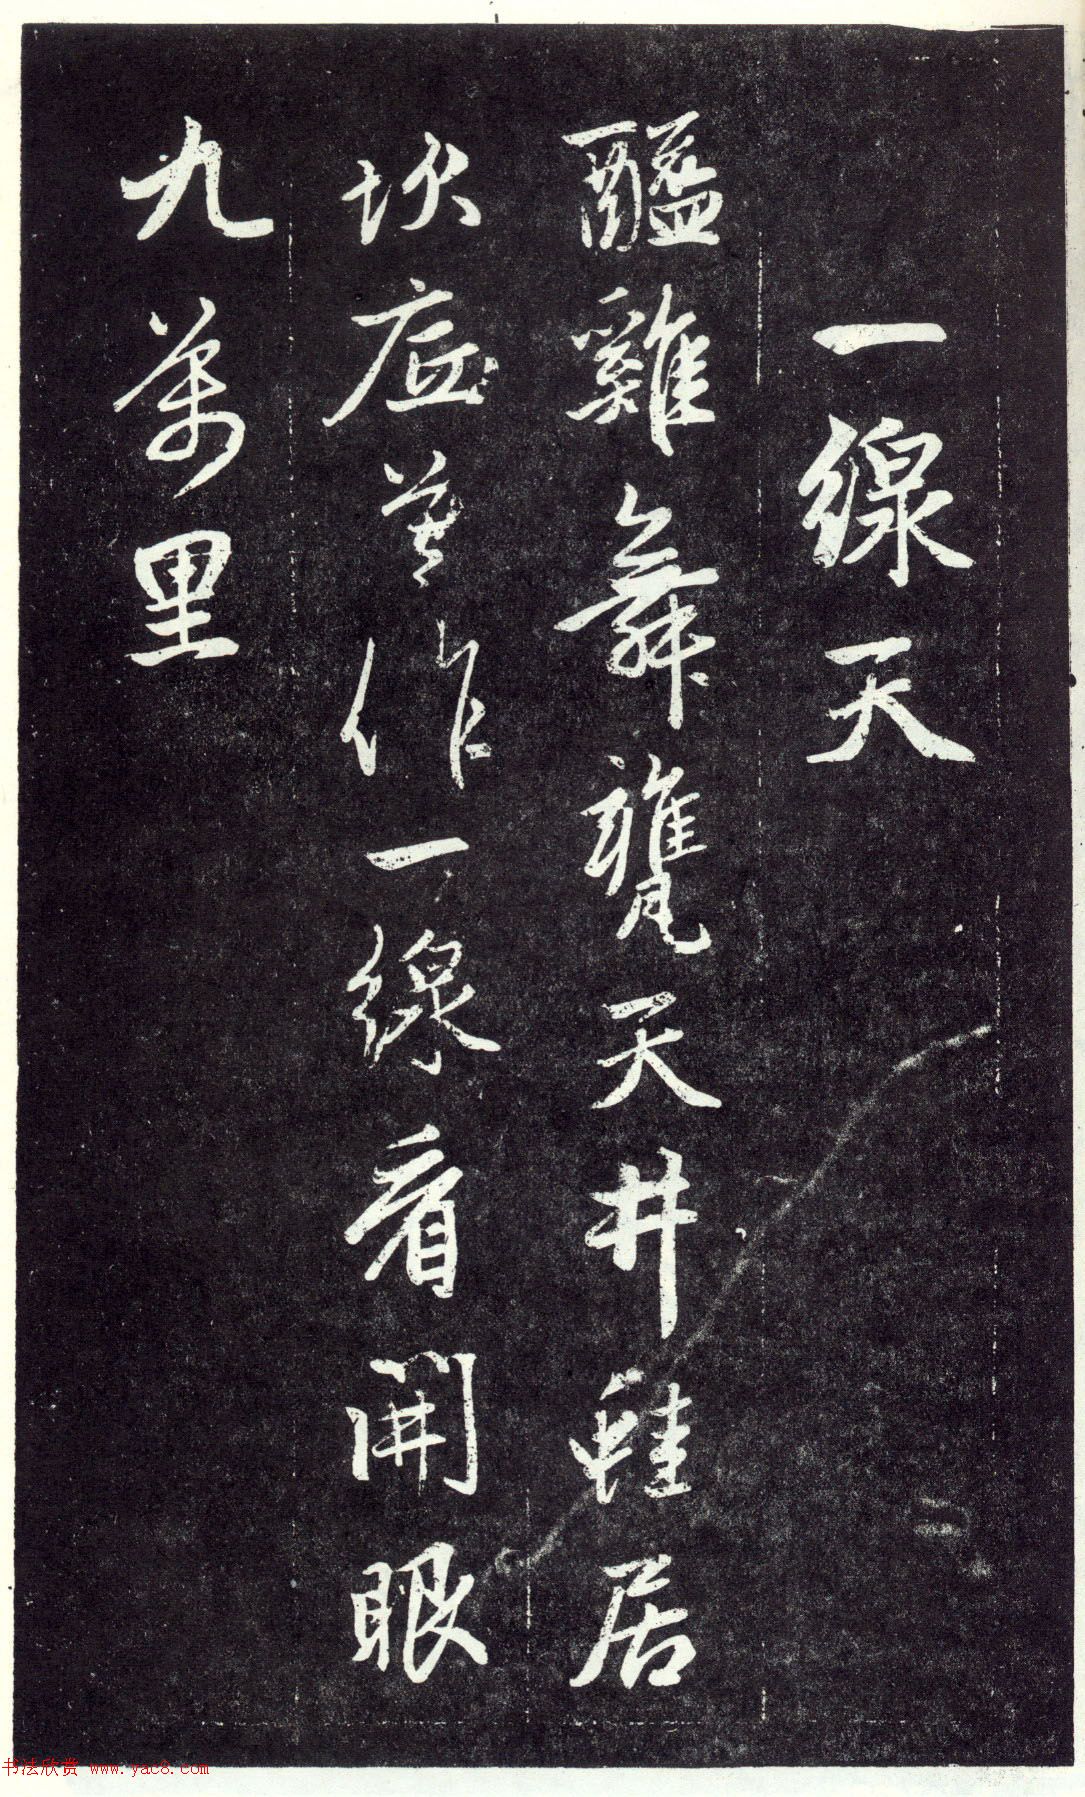 一線天
醯雞舞甕天井蛙居
坎底莫作一線看開眼
九萬里
书法欣赏 www.yac8.com